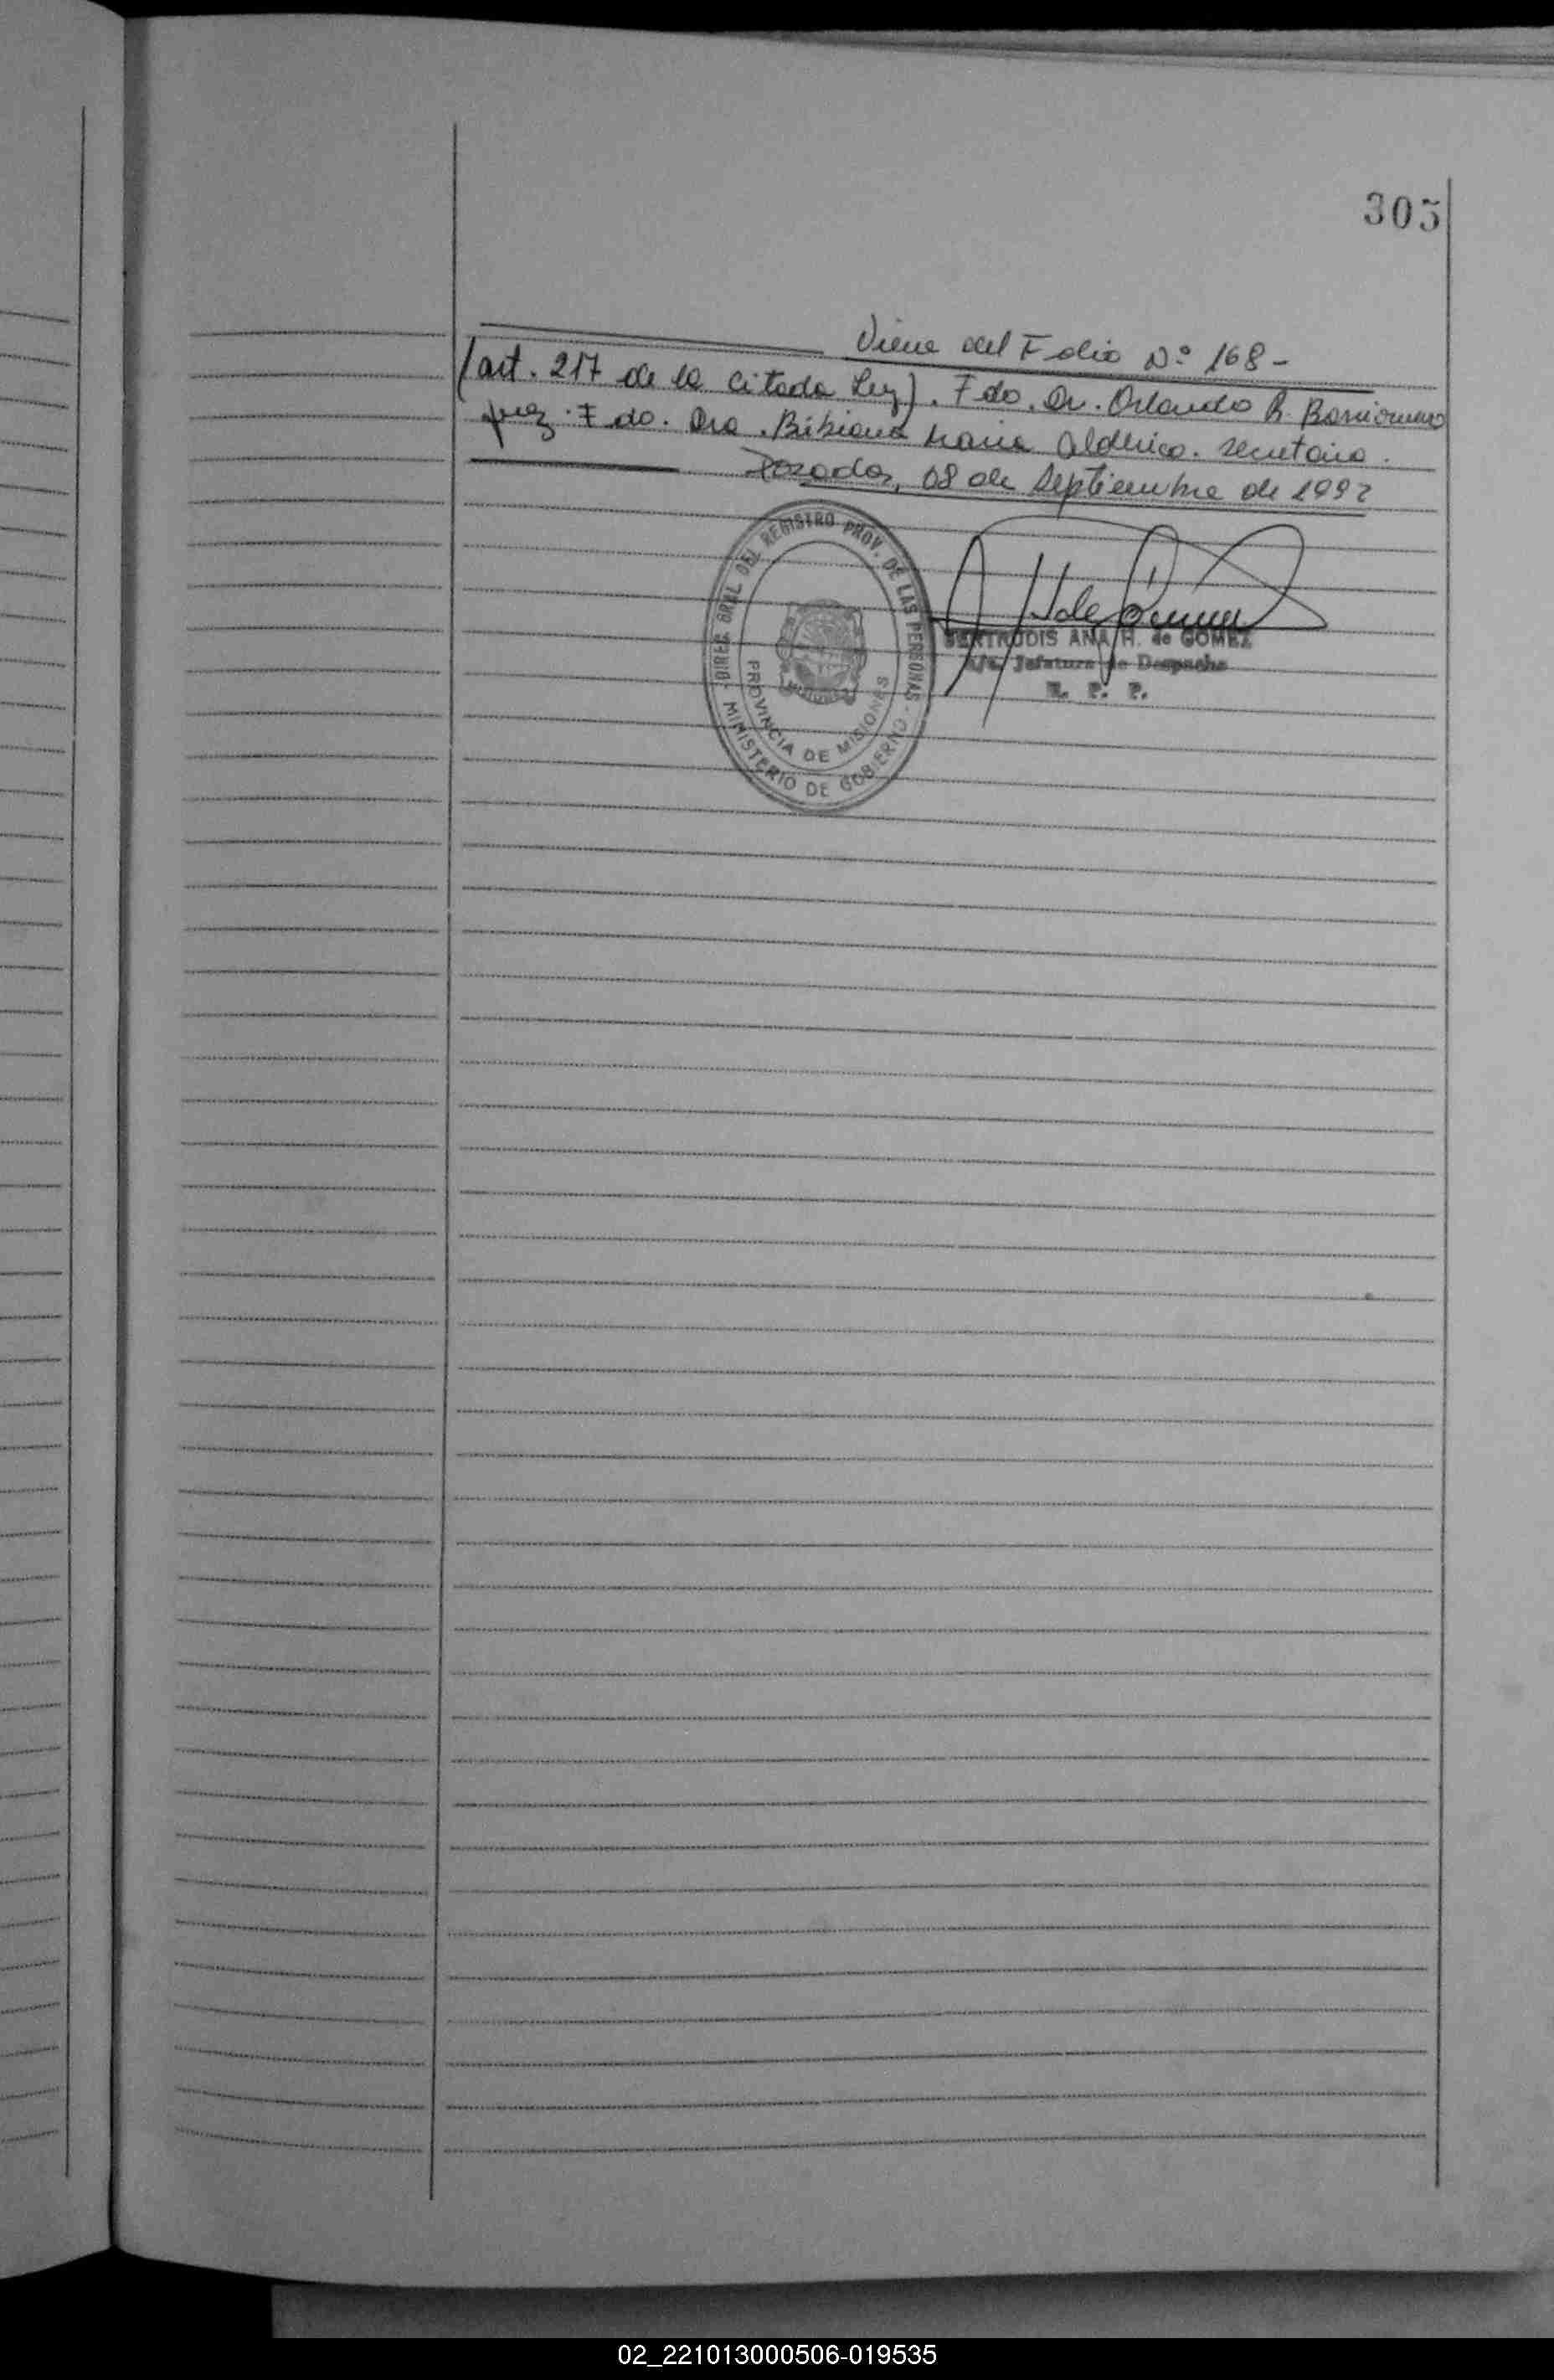 305
Viene del Folio Nº 168-
(art. 217 de la citada Ley). Fdo. Dr. Orlando R.
Juez. Fdo. Dra. Bibiana María Alderico. Secretaria.
Posadas, 08 de Septiembre de 1992
DIREC. GRAL. DEL REGISTRO PROV. DE LAS PERSONAS -
MINISTERIO DE GOBIERNO
PROVINCIA DE MISIONES
GERTRUDIS ANA H. de GOMEZ
Jefatura de Despacho
R. P. P.
02_221013000506-019535